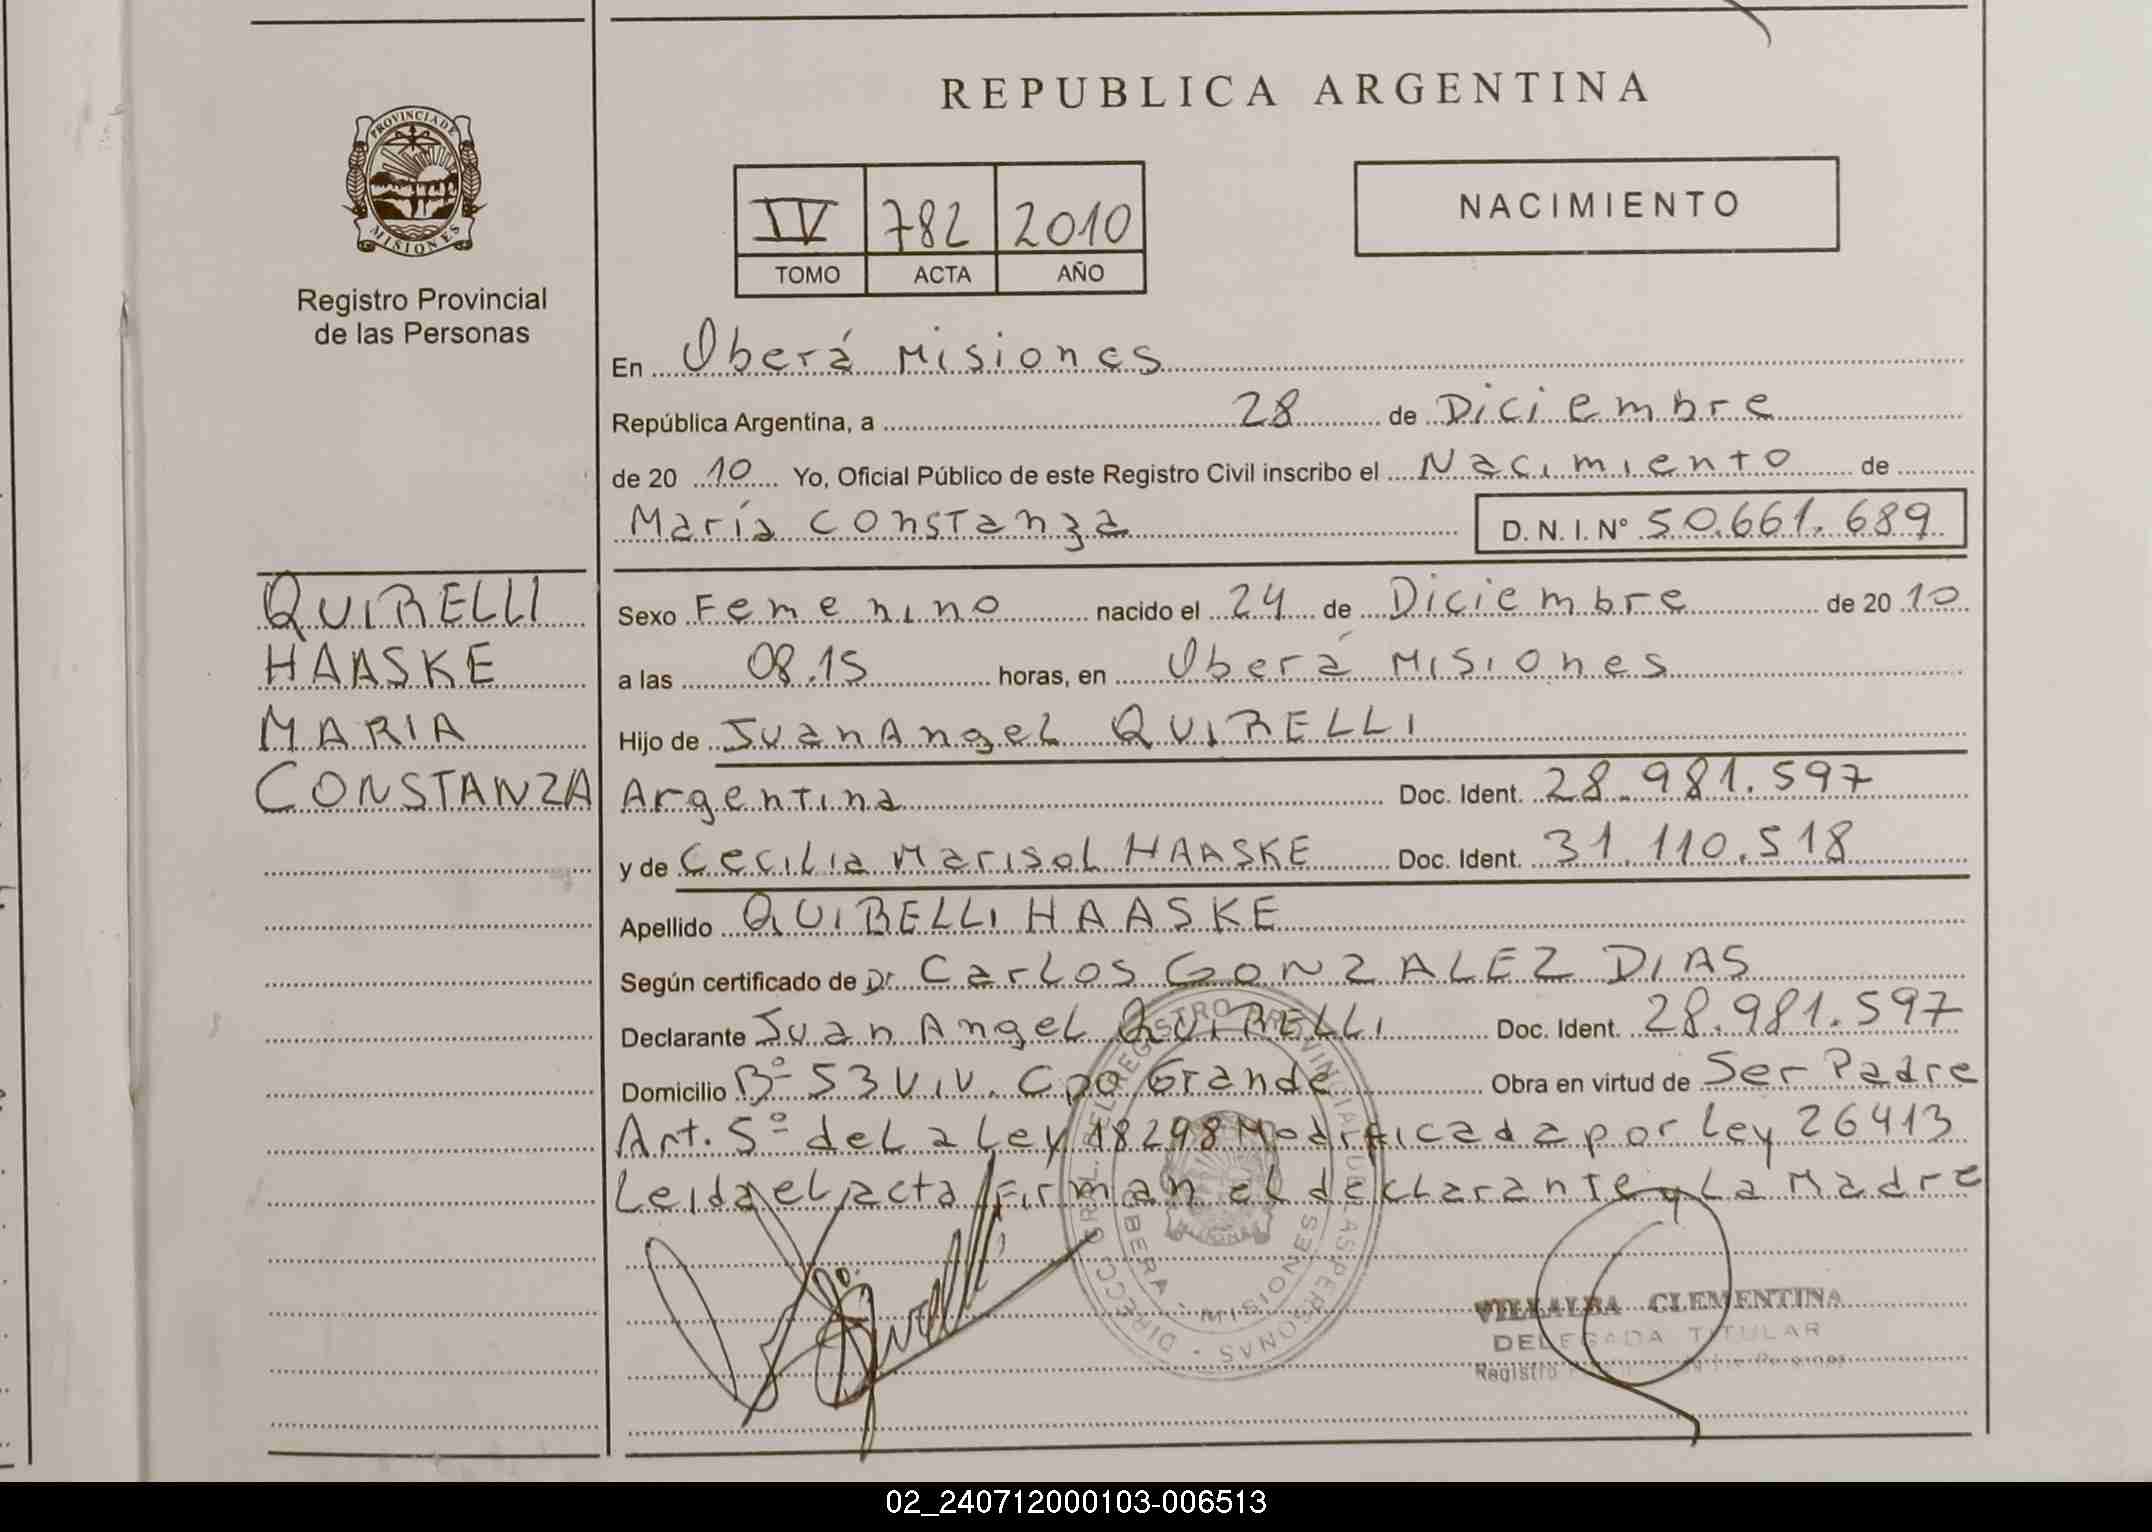 REPUBLICA ARGENTINA
PROVINCIA DE
MISIONES
Registro Provincial
de las Personas
IV 782 2010
TOMO ACTA AÑO
NACIMIENTO
En Oberá Misiones
República Argentina, a 28 de Diciembre
de 20 10 Yo, Oficial Público de este Registro Civil inscribo el Nacimiento de
María Constanza D. N. I. N° 50.661.689
QUIRELLI
HAASKE
MARIA
CONSTANZA
Sexo Femenino nacido el 24 de Diciembre de 20 10
a las 08.15 horas, en Oberá Misiones
Hijo de Juan Angel QUIRELLI
Argentina Doc. Ident. 28.981.597
y de Cecilia Marisol HAASKE Doc. Ident. 31.110.518
Apellido QUIRELLI HAASKE
Según certificado de Dr Carlos GONZALEZ DIAS
Declarante Juan Angel QUIRELLI Doc. Ident. 28.981.597
Domicilio Bº 53 Viv. Cpo Grande Obra en virtud de Ser Padre
Art. 5º de la Ley 18298 Modificada por Ley 26413
Leida el acta firman el declarante y La Madre
DIRECC. GRAL. DEL REGISTRO PROVINCIAL DE LAS PERSONAS
OBERA - MISIONES
VILLALBA CLEMENTINA
DELEGADA TITULAR
Registro
02_240712000103-006513